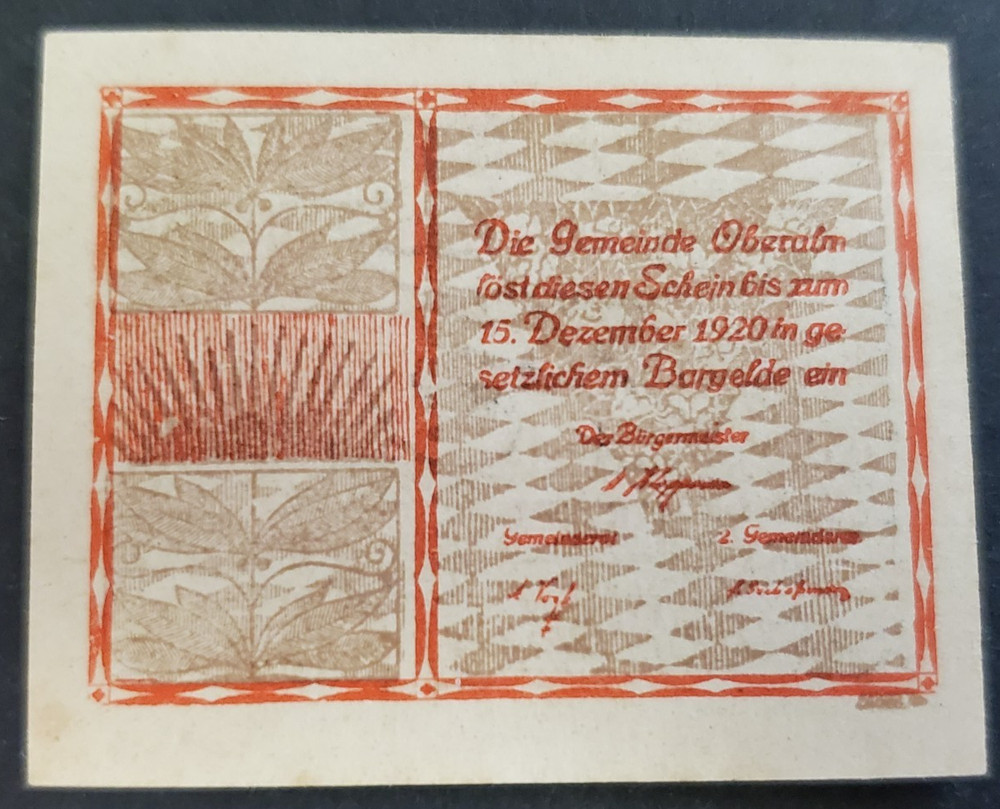 Die Gemeinde Oberalm
löst diesen Schein bis zum
15. Dezember 1920 in ge-
setzlichem Bargelde ein
Der Bürgermeister
Gemeinderat 2. Gemeinderat